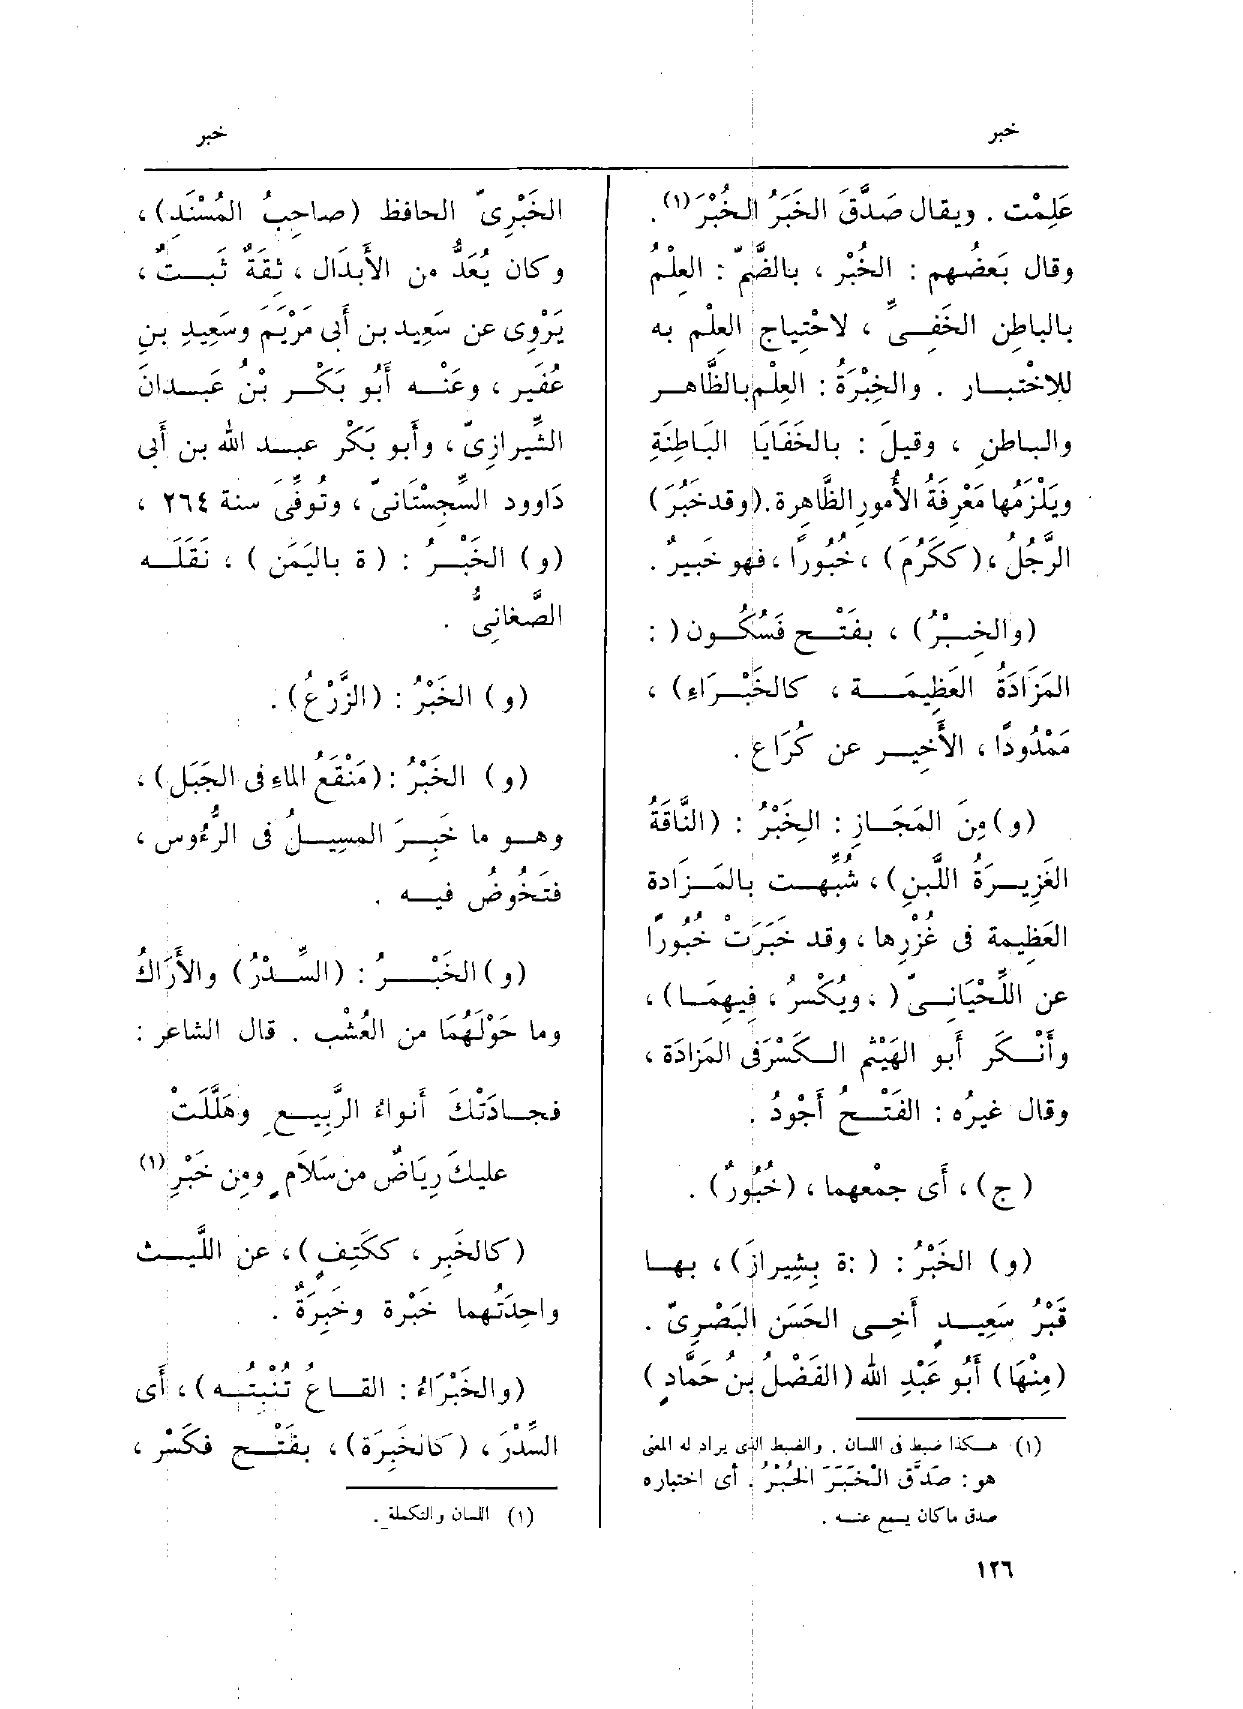 خبر
خبر
عَلِمْت . ويقال صَدَّقَ الخَبَرُ الخُبْرَ (١) .
وقال بَعضُهم : الخُبْر ، بالضَّمّ : العِلْمُ
بالباطِن الخَفِيِّ ، لاحْتِياج العِلْم به
للاخْتِبار . والخِبْرَةُ : العِلْم بالظَّاهر
والباطن ، وقيلَ : بالخَفَايَا البَاطِنَةِ
ويَلْزَمُها مَعْرِفَةُ الأُمور الظَّاهرة . (وقد خَبُرَ)
الرَّجُلُ ، (ككَرُمَ) ، خُبُورًا ، فهو خَبيرٌ .
(والخَبْرُ) ، بفَتْح فَسُكُون ( :
المَزَادَةُ العَظِيمَة ، كالخَبْرَاءِ) ،
مَمْدُودًا ، الأَخِير عن كُرَاع .
(و) مِنَ المَجَازِ : الخَبْرُ : (النَّاقَةُ
الغَزِيرَةُ اللَّبن) ، شُبِّهت بالمَزَادة
العَظِيمة فى غُزْرها ، وقد خَبَرَتْ خُبُورًا
عن اللِّحْيَانىّ ( ، ويُكْسَرُ ، فِيهِمَا) ،
وأَنْكَر أَبو الهَيْثَم الكَسْرَ فى المَزادَة ،
وقال غيرُه : الفَتْحُ أَجْودُ .
(ج) ، أَى جمْعهما ، (خُبُورٌ) .
(و) الخَبْرُ : ( :ة بِشِيرازَ) ، بها
قَبْرُ سَعِيدٍ أَخِى الحَسَن البَصْرِىّ .
(مِنْهَا) أَبُو عَبْدِ الله (الفَضْلُ بنُ حَمَّادٍ)
(١) هكذا ضبط فى اللسان . والضبط الذى يراد له المعنى
هو : صَدَّق الْخَبَرَ الخُبْرُ . أى اختباره
صدق ما كان يسمع عنه .
١٢٦
الخَبْرِىّ الحافظ (صاحِبُ المُسْنَد) ،
وكان يُعَدُّ من الأَبدَال ، ثِقَةٌ ثَبت ،
يَرْوِى عن سَعِيد بن أَبى مَرْيَم وسَعِيدِ بنِ
عُفَير ، وعَنْه أَبُو بَكْر بْنُ عَبدانَ
الشِّيرازِىّ ، وأَبو بَكْر عبد الله بن أَبى
دَاوود السِّجِسْتَانىّ ، وتُوفِّىَ سنة ٢٦٤ ،
(و) الخَبْرُ : ( ة باليَمَن ) ، نَقَلَه
الصَّغانىُّ .
(و) الخَبْرُ : (الزَّرْعُ) .
(و) الخَبْرُ : (مَنْقَعُ الماءِ فى الجَبَل) ،
وهو ما خَبِرَ المسِيلُ فى الرُّءُوس ،
فتَخُوضُ فيه .
(و) الخَبْرُ : (السِّدْرُ) والأَرَاكُ
وما حَوْلَهُمَا من العُشْب . قال الشاعر :
فجادَتْكَ أَنواءُ الرَّبِيعِ وهَلَّلَتْ
عليكَ رِيَاضٌ من سَلَامٍ ومِن خَبْرِ (١)
(كالخَبِر ، ككَتِفٍ) ، عن اللَّيث
واحِدَتُهما خَبْرة وخَبِرَةٌ .
(والخَبْرَاءُ : القَاعُ تُنْبِتُه) ، أَى
السِّدْرَ ، (كالخَبِرَة) ، بفَتْح فكَسْر ،
(١) اللسان والتكملة .